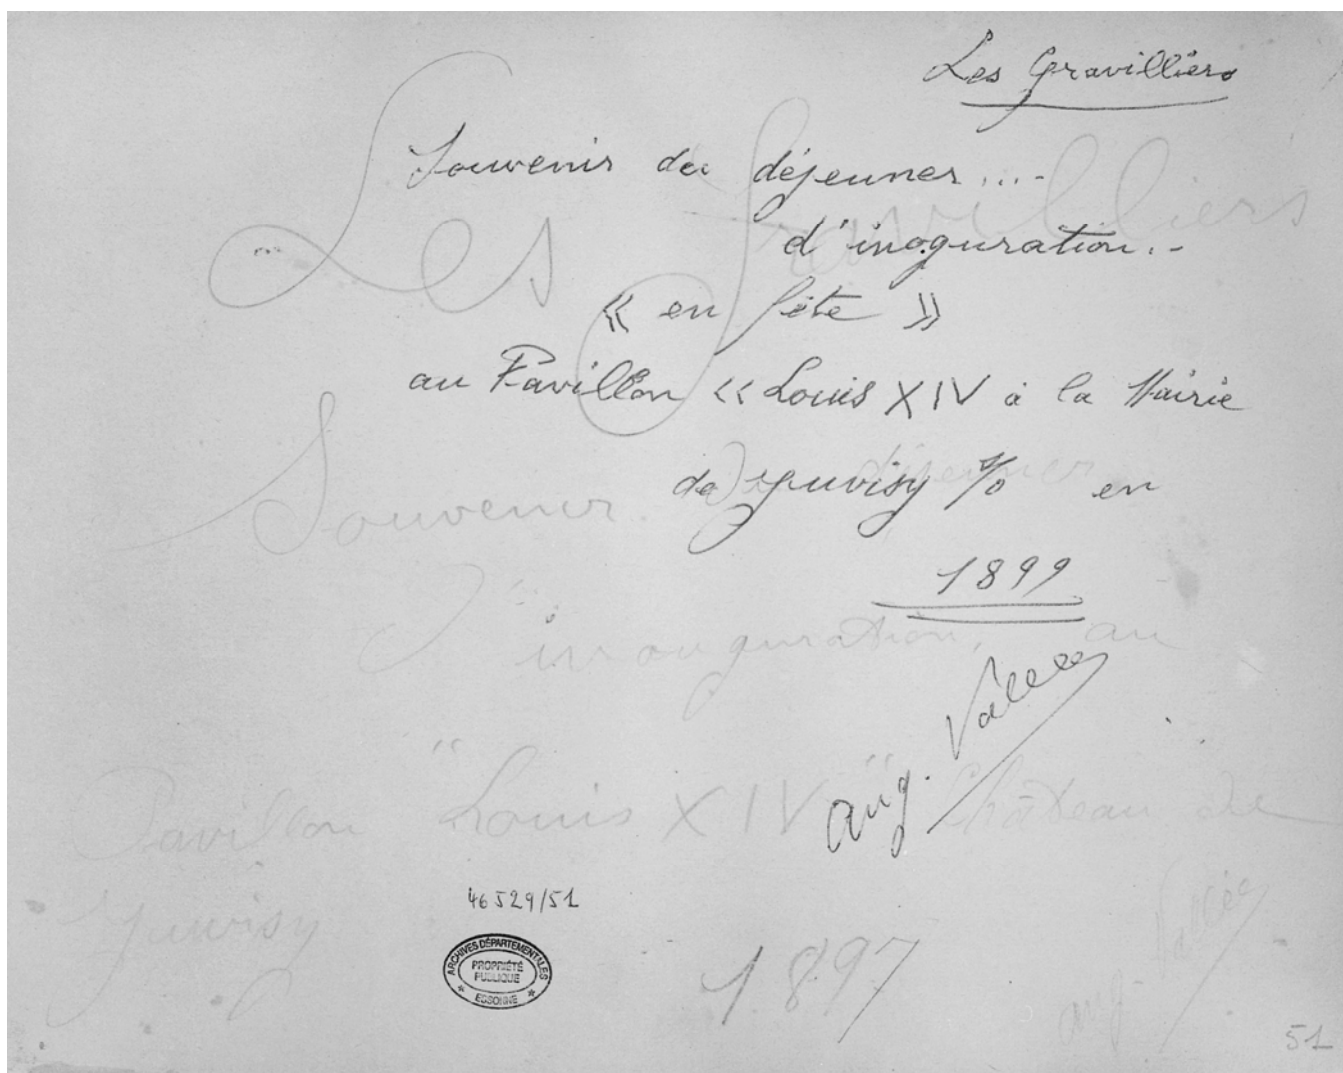 Les Gravilliers
Souvenir du déjeuner...-
d'inoguration.-
« en fête »
au Pavillon << Louis XIV à la Mairie
de Juvisy % en
1899
Aug. Vallée
Les Gravilliers
Souvenir du déjeuner
d'inauguration, au
Pavillon "Louis XIV" Château de
Juvisy
1897
aug. Vallée
46529/51
ARCHIVES DÉPARTEMENTALES
PROPRIÉTÉ
PUBLIQUE
ESSONNE
51